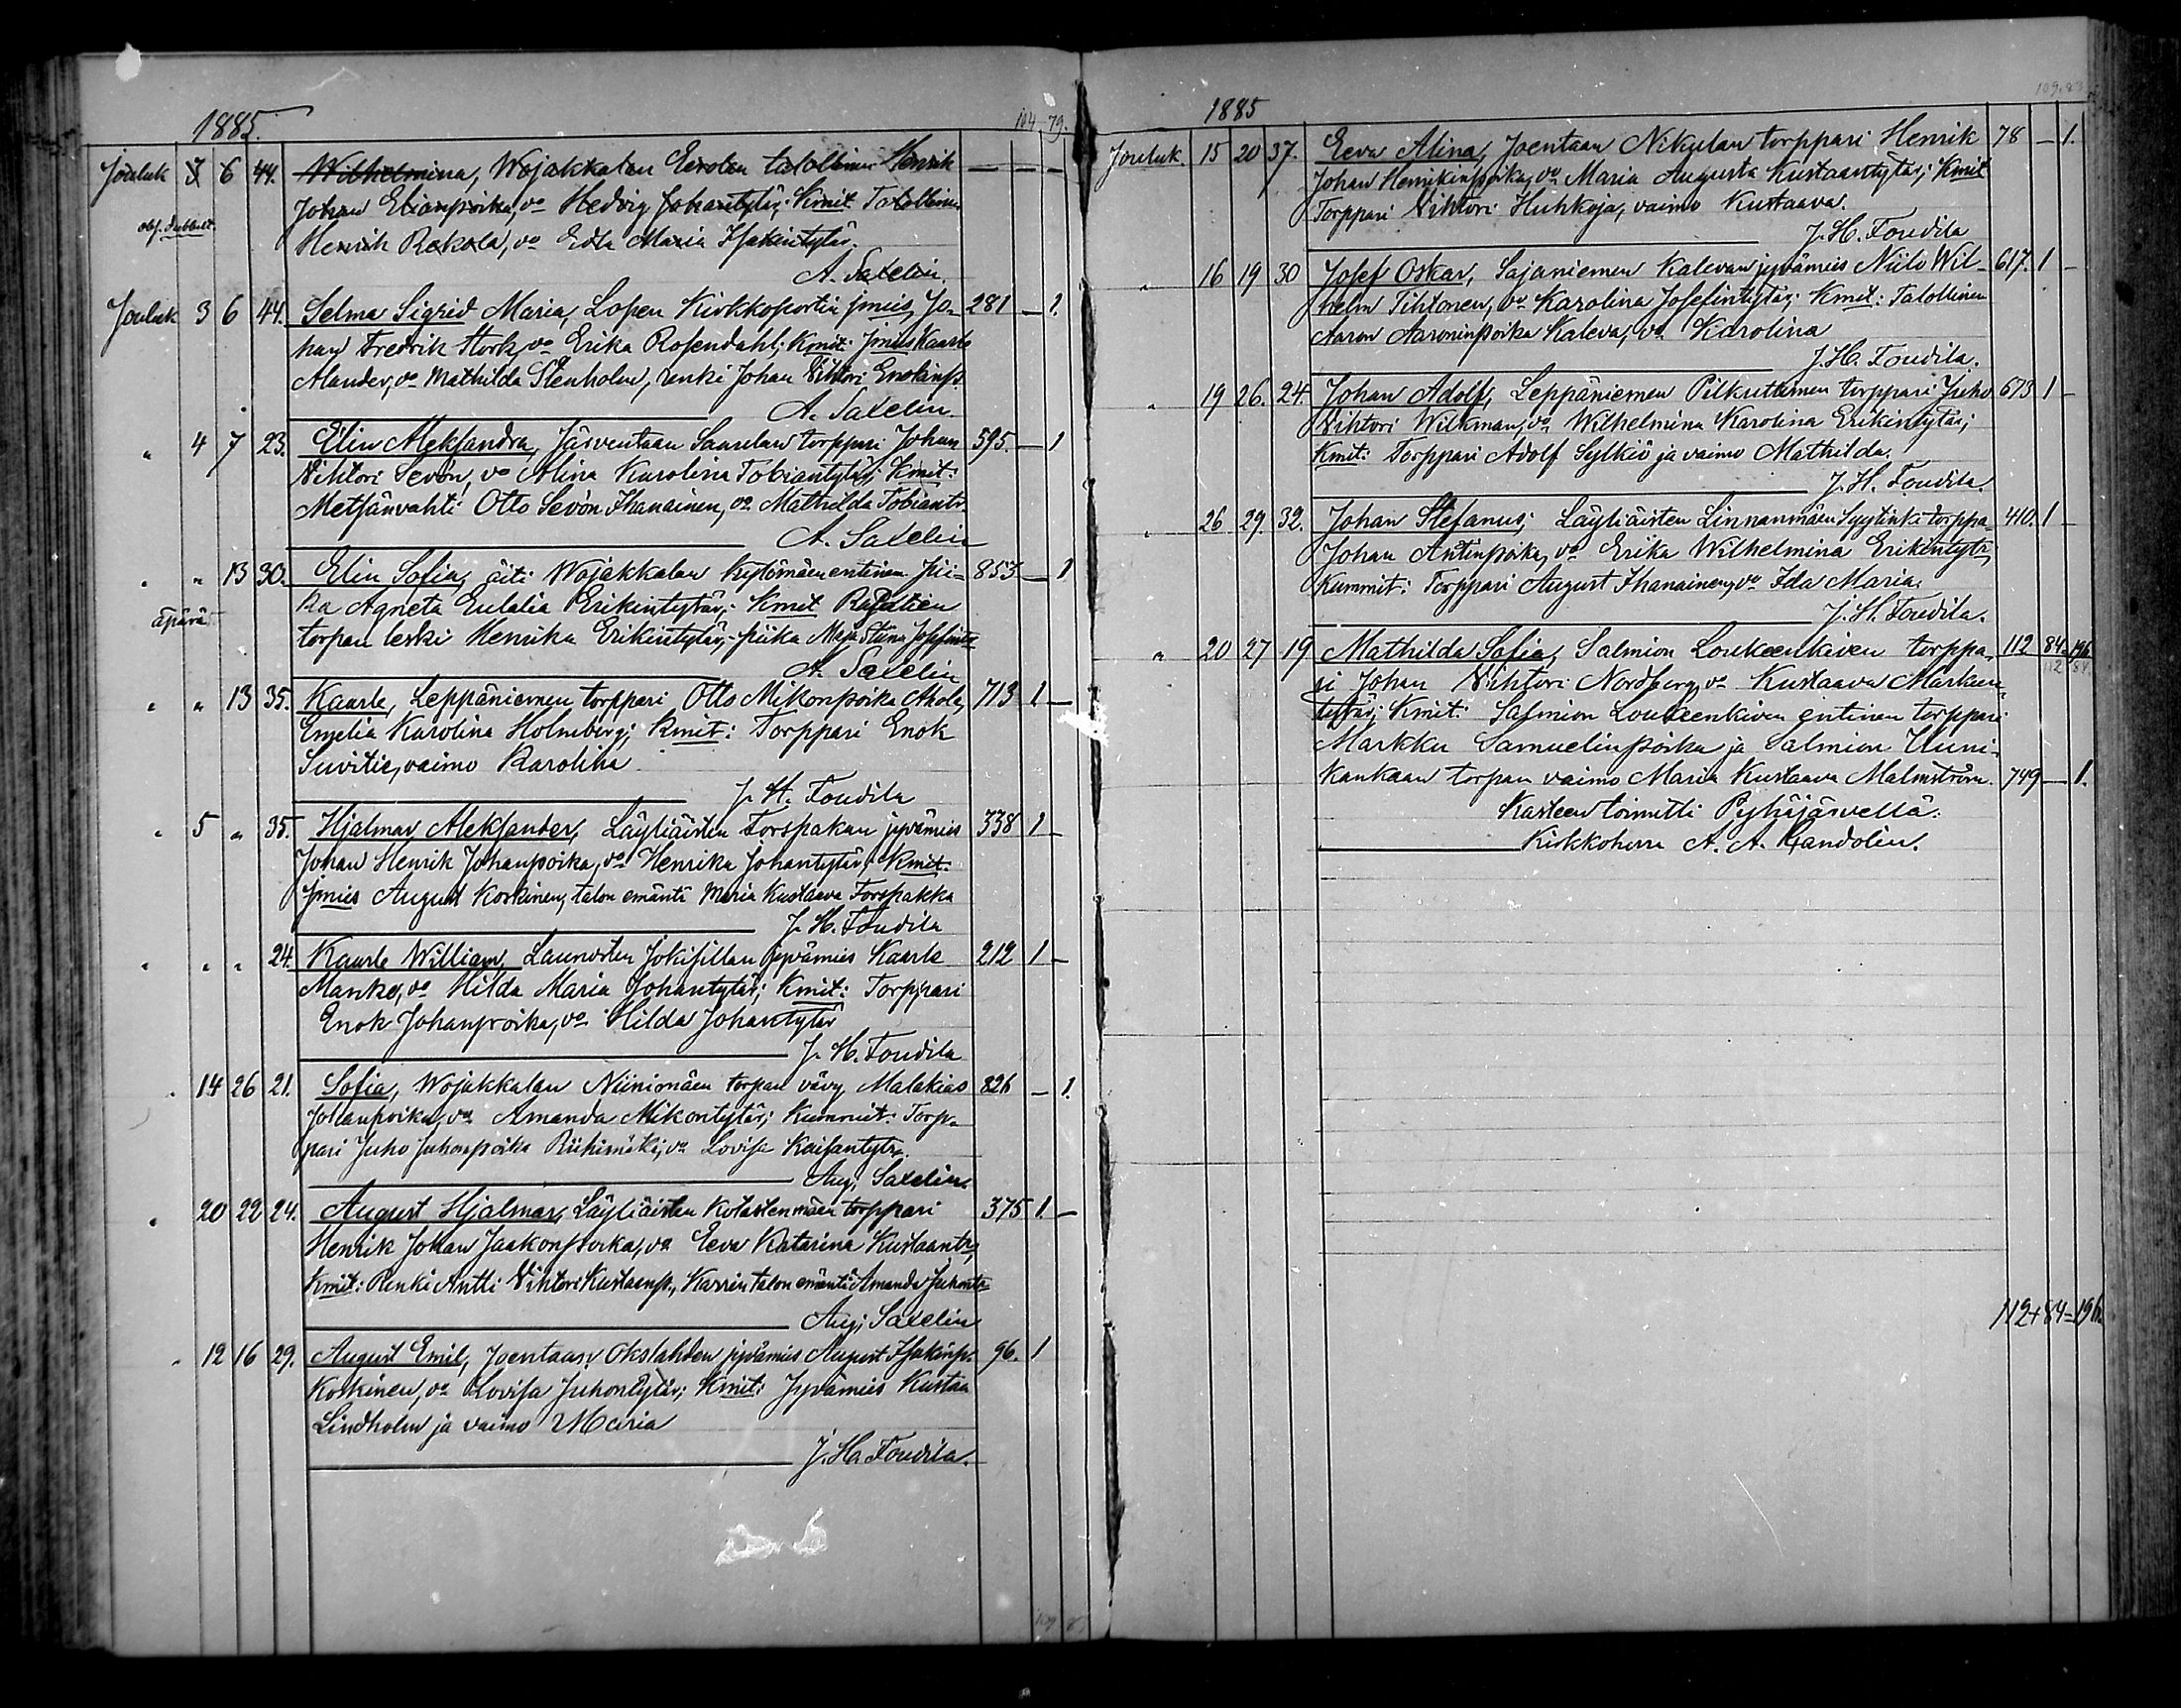 1885.
104 79.
Jouluk 3 6 44. Wilhelmina, Wojakkalan Eerolan talollinen Henrik — — —
Johan Elianpoika, vo Hedvig Johantytär; Kmit Talollinen
obs. dubbelt.
Henrik Rekola, vo Edla Maria Isakintytär.
A. Saxelin.
Jouluk 3 6 44. Selma Sigrid Maria, Lopen Kirkkoportin jmies, Jo- 281 — 1.
han Fredrik Stork, vo Erika Rosendahl; Kmit: Jmies Kaarle
Alander, vo Mathilda Stenholm, renki Johan Vihtori Enokinp.
A. Saxelin.
" 4 7 23. Elin Aleksandra, Järventaan Saarelan torppari Johan 595. — 1
Vihtori Sevón, vo Alina Karolina Tobiantytär; Kmit:
Metsänvahti Otto Sevón Ihanainen, vo Mathilda Tobiantr.
A. Saxelin
" " 13 30. Elin Sofia, äiti Wojakkalan Kytömäen entinen pii- 853 — 1
äpärä
ka Agneta Eulalia Erikintytär; Kmit
torpan leski Henrika Erikintytär, piika Maja Stina Josefintr
A. Saxelin
" " 13 35. Kaarle, Leppäniemen torppari Otto Mikonpoika Ahola, 713 1 —
Emelia Karolina Holmberg; Kmit: Torppari Enok
Suvitie, vaimo Karolina
J. H. Foudila
" 5 " 35. Hjalmar Aleksander, Läyliäisten Forspakan jyvämies 338 1 —
Johan Henrik Johanpoika, vo Henrika Johantytär; Kmit.
Jmies August Koskinen, talon emäntä Maria Kustaava Forspakka
J. H. Foudila
" " " 24. Kaarle William, Launosten Jokisillan jyvämies Kaarle 212 1 —
Manko, vo Hilda Maria Johantytär; Kmit: Torppari
Enok Johanpoika, vo Hilda Johantytär
J. H. Foudila
" 14 26 21. Sofia, Wojakkalan Niinimäen torpan vävy Malakias 826 — 1.
Johanpoika, vo Amanda Mikontytär; Kummit: Torp-
pari Juho Juhonpoika Riihimäki, vo Lovisa Kaisantytr.
Aug. Saxelin.
" 20 22 24. August Hjalmar, Läyliäisten Kolastenmäen torppari 375 1. —
Henrik Johan Jaakonpoika, vo Eeva Katarina Kustaantr,
Kmit: Renki Antti Vihtori Kustaanp., Karrin talon emäntä Amanda Juhontr
Aug. Saxelin
" 12 16 29. August Emil, Joentaan Okslahden jyvämies August Isakinp. 96. 1
Koskinen, vo Lovisa Juhontytär; Kmit: Jyvämies Kustaa
Lindholm ja vaimo Maria
J. H. Foudila.
109 83
1885
109. 83
Jouluk. 15 20 37. Eeva Alina, Joentaan Nikulan torppari Henrik 78 — 1.
Johan Henrikinpoika, vo Maria Augusta Kustaantytär; Kmit
Torppari Vihtori Huhkoja, vaimo Kustaava.
J. H. Foudila
" 16 19 30 Josef Oskar, Sajaniemen Kalevan jyvämies Niilo Wil- 617. 1 —
helm Tihtonen, vo Karolina Josefintytär; Kmit: Talollinen
Aaron Aaroninpoika Kaleva, vo Karolina
J. H. Foudila.
" 19 26. 24. Johan Adolf, Leppäniemen Pilkuttimen torppari Juho 673 1 —
Vihtori Wilkman, vo Wilhelmina Karolina Erikintytär;
Kmit: Torppari Adolf Sylkiö ja vaimo Mathilda.
J. H. Foudila.
" 26 29. 32. Johan Stefanus, Läyliäisten Linnanmäen Syytinki torppa- 410. 1 —
Johan Antinpoika, vo Erika Wilhelmina Erikintytr,
Kummit: Torppari August Ihanainen, vo Ida Maria.
J. H. Foudila.
" 20 27 19 Mathilda Sofia, Salmion Loukeenkiven torppa- 112 84 = 196
112 84
ri Johan Vihtori Nordberg, vo Kustaava Markun-
tytär; Kmit: Salmion Loukeenkiven entinen torppari
Markku Samuelinpoika ja Salmion Uuni-
kankaan torpan vaimo Maria Kustaava Malmström. 749 — 1.
Kasteen toimitti Pyhäjärvellä.
Kirkkoherra A. A. Kandolin.
112+84=196